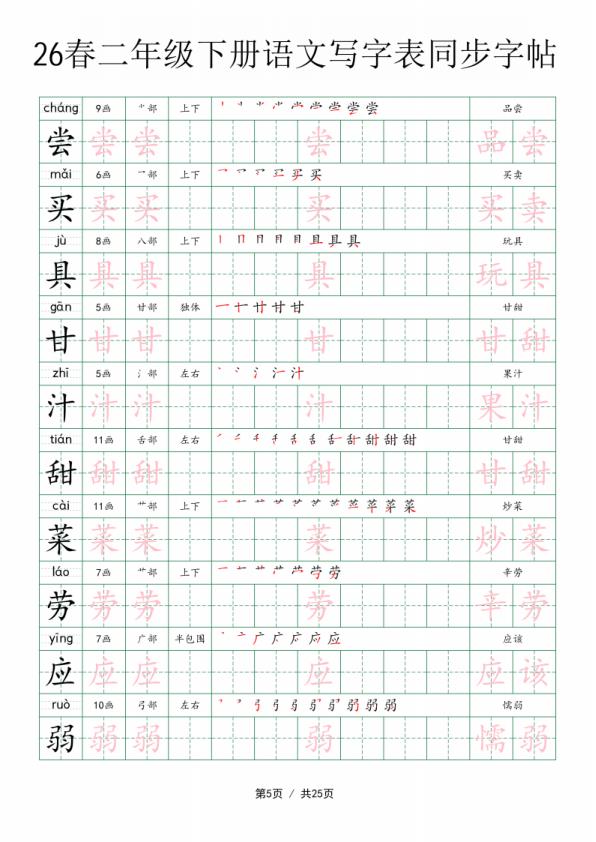 26春二年级下册语文写字表同步字帖
cháng 9画 ⺌部 上下 品尝
尝 尝 尝 尝 品 尝
mǎi 6画 乛部 上下 买卖
买 买 买 买 买 卖
jù 8画 八部 上下 玩具
具 具 具 具 玩 具
gān 5画 甘部 独体 甘甜
甘 甘 甘 甘 甘 甜
zhī 5画 氵部 左右 果汁
汁 汁 汁 汁 果 汁
tián 11画 舌部 左右 甘甜
甜 甜 甜 甜 甘 甜
cài 11画 艹部 上下 炒菜
菜 菜 菜 菜 炒 菜
láo 7画 艹部 上下 辛劳
劳 劳 劳 劳 辛 劳
yīng 7画 广部 半包围 应该
应 应 应 应 应 该
ruò 10画 弓部 左右 懦弱
弱 弱 弱 弱 懦 弱
第5页 / 共25页